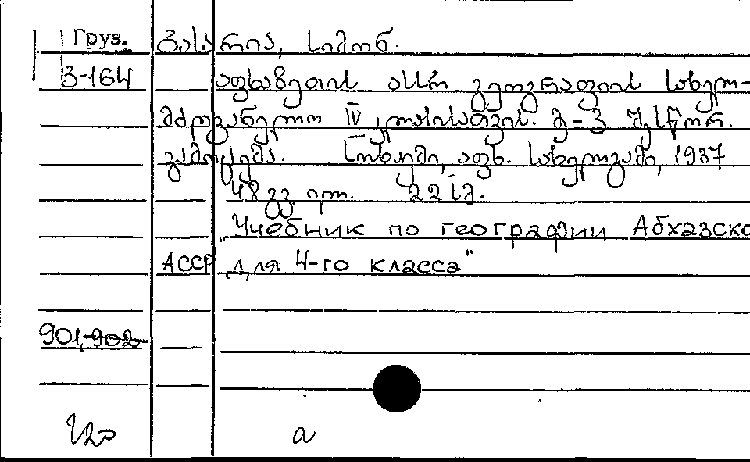 Груз. ბასარია, სიმონ.
ვ-164 აფხაზეთის ასსრ გეოგრაფიის სახელ-
მძღვანელო IV კლასისათვის. მ-ვ შესწორ.
გამოცემა. სოხუმი, აფხ. სახელგამი, 1937
48 გვ. 22 სმ.
„Учебник по географии Абхазско
АССР для 4-го класса"
901,902
а